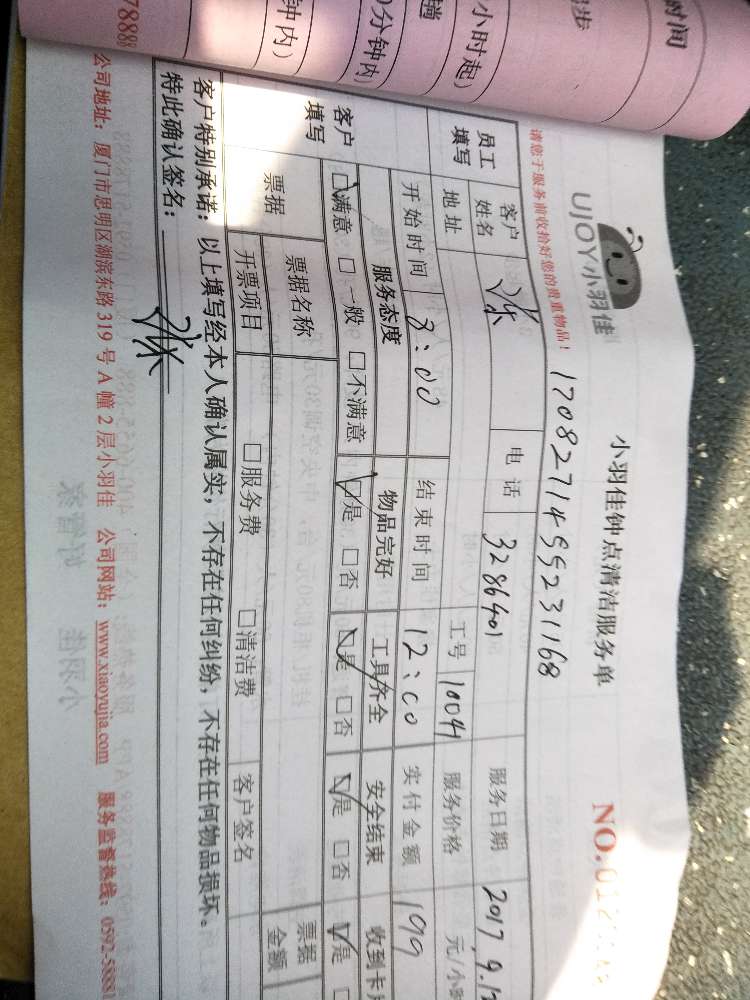 时间
小时起)
分钟内)
钟内)
78888
UJOY小羽佳
小羽佳钟点清洁服务单
NO.
请您于服务前收拾好您的贵重物品!
17082714552231168
员工填写
客户姓名
张
电话
3286401
服务日期
2017.9.
地址
工号
10041
服务价格
元/小
开始时间
8:00
结束时间
12:00
实付金额
199
客户填写
服务态度
物品完好
工具齐全
安全结束
收到卡
☑满意 □一般 □不满意
☑是 □否
☑是 □否
☑是 □否
☑是
票据
票据名称
票据金额
开票项目
□服务费
□清洁费
客户签名
客户特别承诺:以上填写经本人确认属实,不存在任何纠纷,不存在任何物品损坏。
特此确认签名:
张
公司地址:厦门市思明区湖滨东路319号A幢2层小羽佳 公司网站:www.xiaoyujia.com 服务监督热线:0592-5888